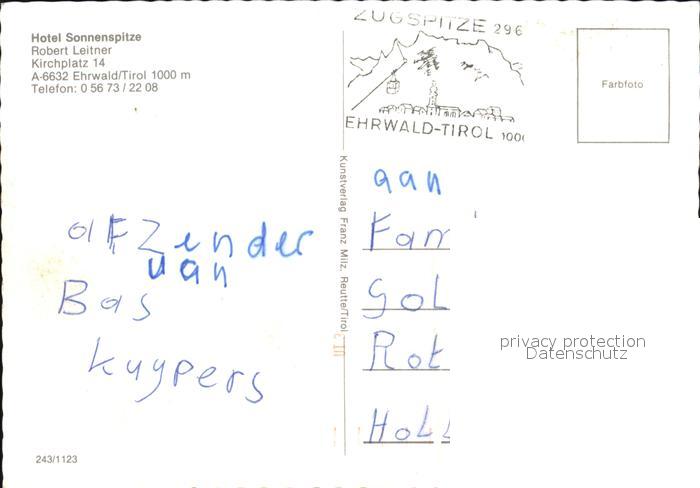 Hotel Sonnenspitze
Robert Leitner
Kirchplatz 14
A-6632 Ehrwald/Tirol 1000 m
Telefon: 0 56 73 / 22 08
afzender
van
Bas
kuypers
243/1123
Kunstverlag Franz Milz, Reutte/Tirol
ZUGSPITZE 296
EHRWALD-TIROL 100
Farbfoto
aan
Fam
Gol
Rot
Holl
privacy protection
Datenschutz